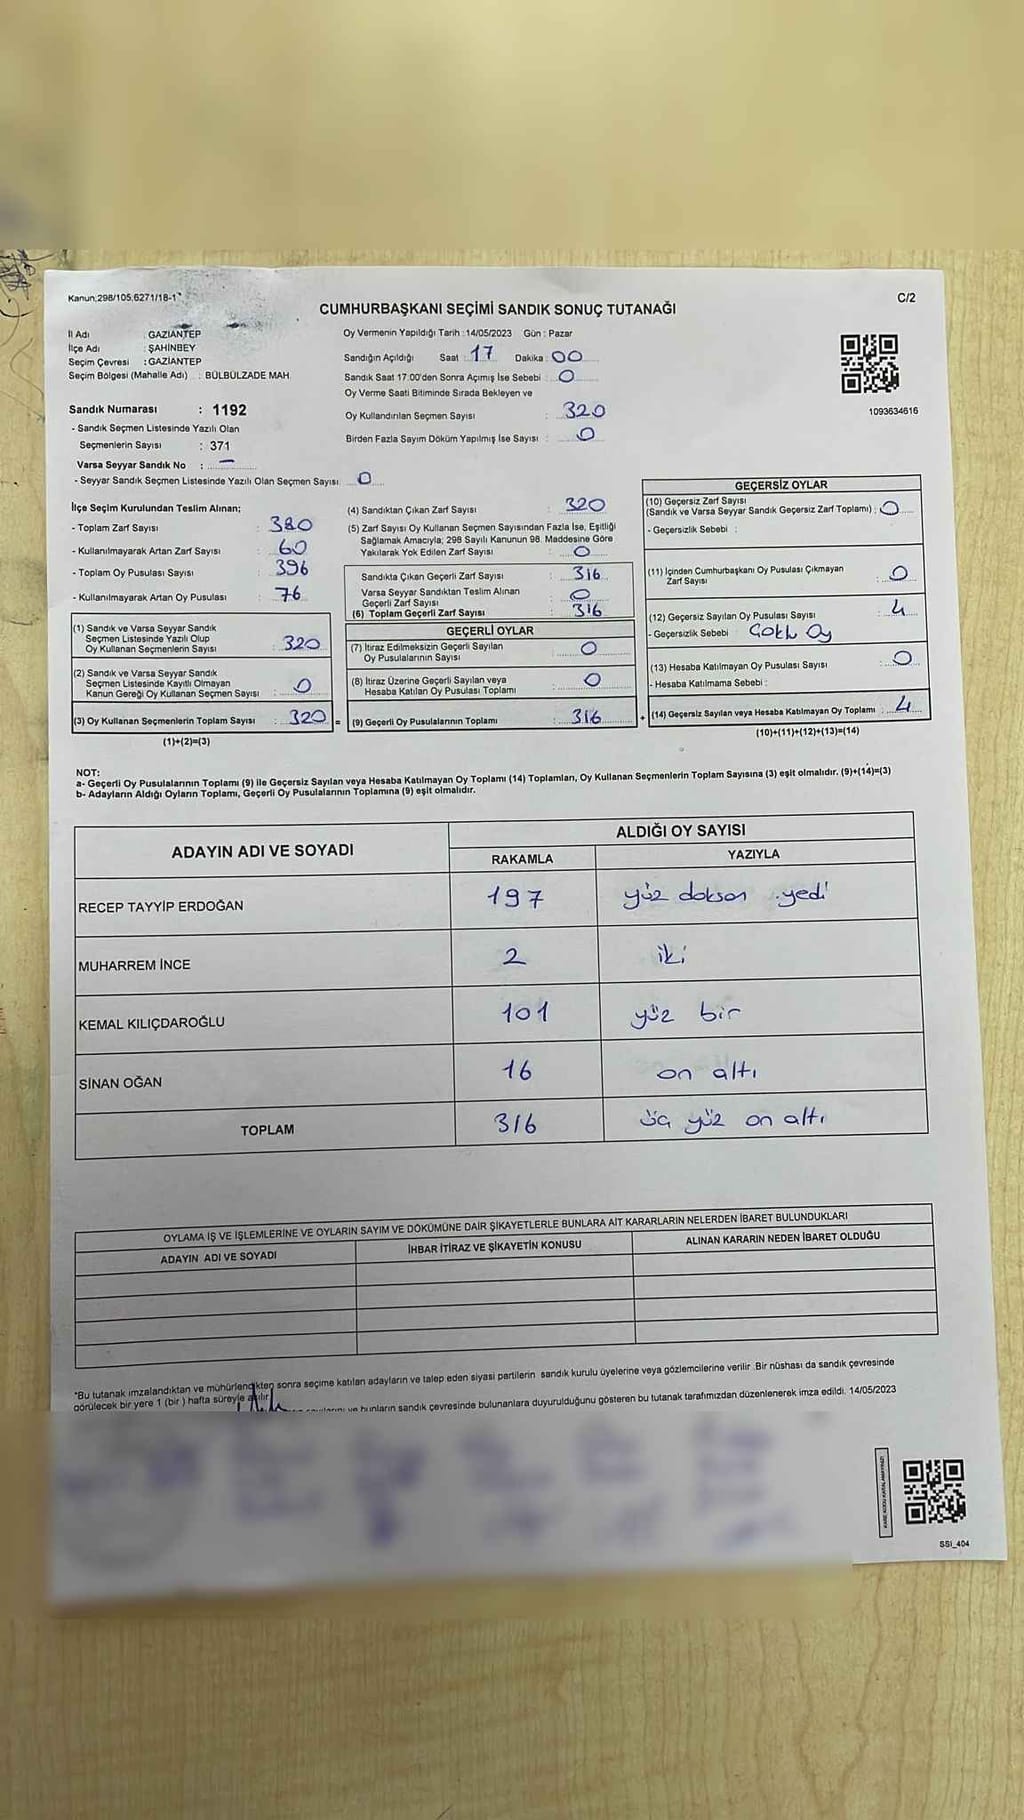 Kanun;298/105;6271/18-1
C/2
CUMHURBAŞKANI SEÇİMİ SANDIK SONUÇ TUTANAĞI
İl Adı : GAZİANTEP
İlçe Adı : ŞAHİNBEY
Seçim Çevresi : GAZİANTEP
Seçim Bölgesi (Mahalle Adı) : BÜLBÜLZADE MAH.
Sandık Numarası : 1192
- Sandık Seçmen Listesinde Yazılı Olan
Seçmenlerin Sayısı : 371
Varsa Seyyar Sandık No : –
- Seyyar Sandık Seçmen Listesinde Yazılı Olan Seçmen Sayısı : 0
Oy Vermenin Yapıldığı Tarih : 14/05/2023 Gün : Pazar
Sandığın Açıldığı Saat : 17 Dakika : 00
Sandık Saat 17:00'den Sonra Açımış İse Sebebi : 0
Oy Verme Saati Bitiminde Sırada Bekleyen ve
Oy Kullandırılan Seçmen Sayısı : 320
Birden Fazla Sayım Döküm Yapılmış İse Sayısı : 0
1093634616
İlçe Seçim Kurulundan Teslim Alınan;
- Toplam Zarf Sayısı : 380
- Kullanılmayarak Artan Zarf Sayısı : 60
- Toplam Oy Pusulası Sayısı : 396
- Kullanılmayarak Artan Oy Pusulası : 76
(1) Sandık ve Varsa Seyyar Sandık
Seçmen Listesinde Yazılı Olup
Oy Kullanan Seçmenlerin Sayısı : 320
(2) Sandık ve Varsa Seyyar Sandık
Seçmen Listesinde Kayıtlı Olmayan
Kanun Gereği Oy Kullanan Seçmen Sayısı : 0
(3) Oy Kullanan Seçmenlerin Toplam Sayısı : 320 =
(1)+(2)=(3)
(4) Sandıktan Çıkan Zarf Sayısı : 320
(5) Zarf Sayısı Oy Kullanan Seçmen Sayısından Fazla İse, Eşitliği
Sağlamak Amacıyla; 298 Sayılı Kanunun 98. Maddesine Göre
Yakılarak Yok Edilen Zarf Sayısı : 0
Sandıkta Çıkan Geçerli Zarf Sayısı : 316
Varsa Seyyar Sandıktan Teslim Alınan
Geçerli Zarf Sayısı : 0
(6) Toplam Geçerli Zarf Sayısı : 316
GEÇERLİ OYLAR
(7) İtiraz Edilmeksizin Geçerli Sayılan
Oy Pusulalarının Sayısı : 0
(8) İtiraz Üzerine Geçerli Sayılan veya
Hesaba Katılan Oy Pusulası Toplamı : 0
(9) Geçerli Oy Pusulalarının Toplamı : 316 +
GEÇERSİZ OYLAR
(10) Geçersiz Zarf Sayısı
(Sandık ve Varsa Seyyar Sandık Geçersiz Zarf Toplamı) : 0
- Geçersizlik Sebebi :
(11) İçinden Cumhurbaşkanı Oy Pusulası Çıkmayan
Zarf Sayısı : 0
(12) Geçersiz Sayılan Oy Pusulası Sayısı : 4
- Geçersizlik Sebebi : Çoklu Oy
(13) Hesaba Katılmayan Oy Pusulası Sayısı : 0
- Hesaba Katılmama Sebebi :
(14) Geçersiz Sayılan veya Hesaba Katılmayan Oy Toplamı : 4
(10)+(11)+(12)+(13)=(14)
NOT:
a- Geçerli Oy Pusulalarının Toplamı (9) ile Geçersiz Sayılan veya Hesaba Katılmayan Oy Toplamı (14) Toplamları, Oy Kullanan Seçmenlerin Toplam Sayısına (3) eşit olmalıdır. (9)+(14)=(3)
b- Adayların Aldığı Oyların Toplamı, Geçerli Oy Pusulalarının Toplamına (9) eşit olmalıdır.
ADAYIN ADI VE SOYADI ALDIĞI OY SAYISI
RAKAMLA YAZIYLA
RECEP TAYYİP ERDOĞAN 197 yüz doksan yedi
MUHARREM İNCE 2 iki
KEMAL KILIÇDAROĞLU 101 yüz bir
SİNAN OĞAN 16 on altı
TOPLAM 316 üç yüz on altı
OYLAMA İŞ VE İŞLEMLERİNE VE OYLARIN SAYIM VE DÖKÜMÜNE DAİR ŞİKAYETLERLE BUNLARA AİT KARARLARIN NELERDEN İBARET BULUNDUKLARI
ADAYIN ADI VE SOYADI İHBAR İTİRAZ VE ŞİKAYETİN KONUSU ALINAN KARARIN NEDEN İBARET OLDUĞU
*Bu tutanak imzalandıktan ve mühürlendikten sonra seçime katılan adayların ve talep eden siyasi partilerin sandık kurulu üyelerine veya gözlemcilerine verilir .Bir nüshası da sandık çevresinde
görülecek bir yere 1 (bir ) hafta süreyle asılır.
ve bunların sandık çevresinde bulunanlara duyurulduğunu gösteren bu tutanak tarafımızdan düzenlenerek imza edildi. 14/05/2023
SSI_404